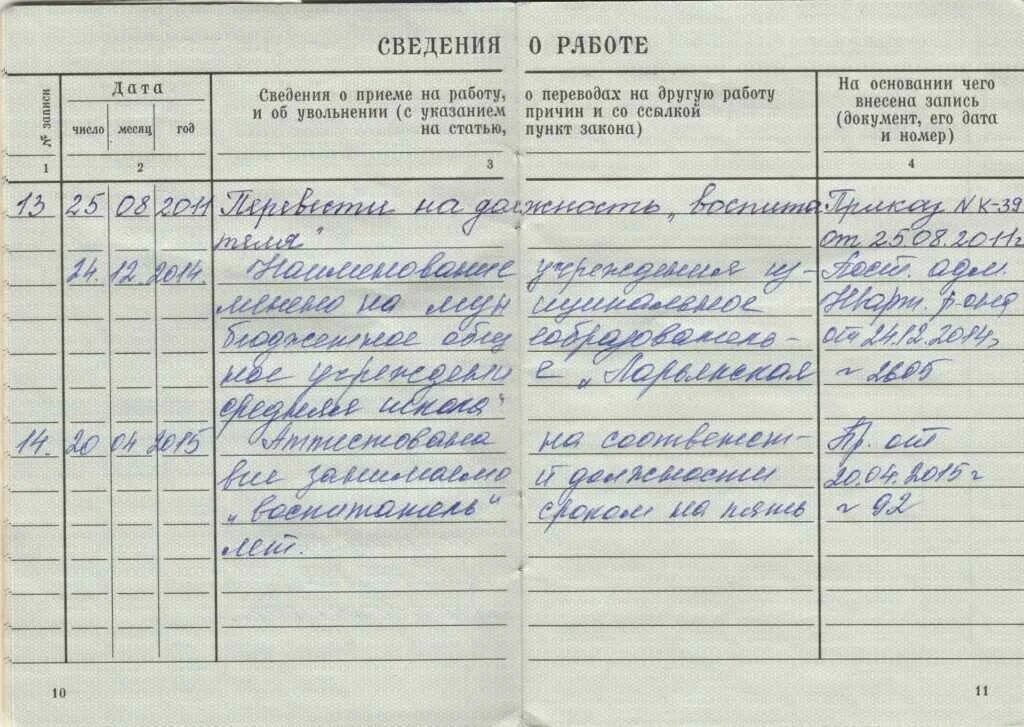 СВЕДЕНИЯ О РАБОТЕ
№ записи
Дата
число месяц год
Сведения о приеме на работу, о переводах на другую работу
и об увольнении (с указанием причин и со ссылкой
на статью, пункт закона)
На основании чего
внесена запись
(документ, его дата
и номер)
1 2 3 4
13 25 08 2011 Перевести на должность „воспита Приказ N К-39
теля" от 25.08.2011г
24. 12. 2014. Наименование учреждения из- Пост. адм.
менено на муниципальное Нварт. р-она
бюджетное общеобразователь- от 24.12.2014,
ное учреждение „Ларьякская ~ 2605
средняя школа"
14. 20 04 2015 Аттестована на соответст- Пр. от
вие занимаемой должности 20.04.2015 г
„воспитатель" сроком на пять ~ 92
лет.
10 11